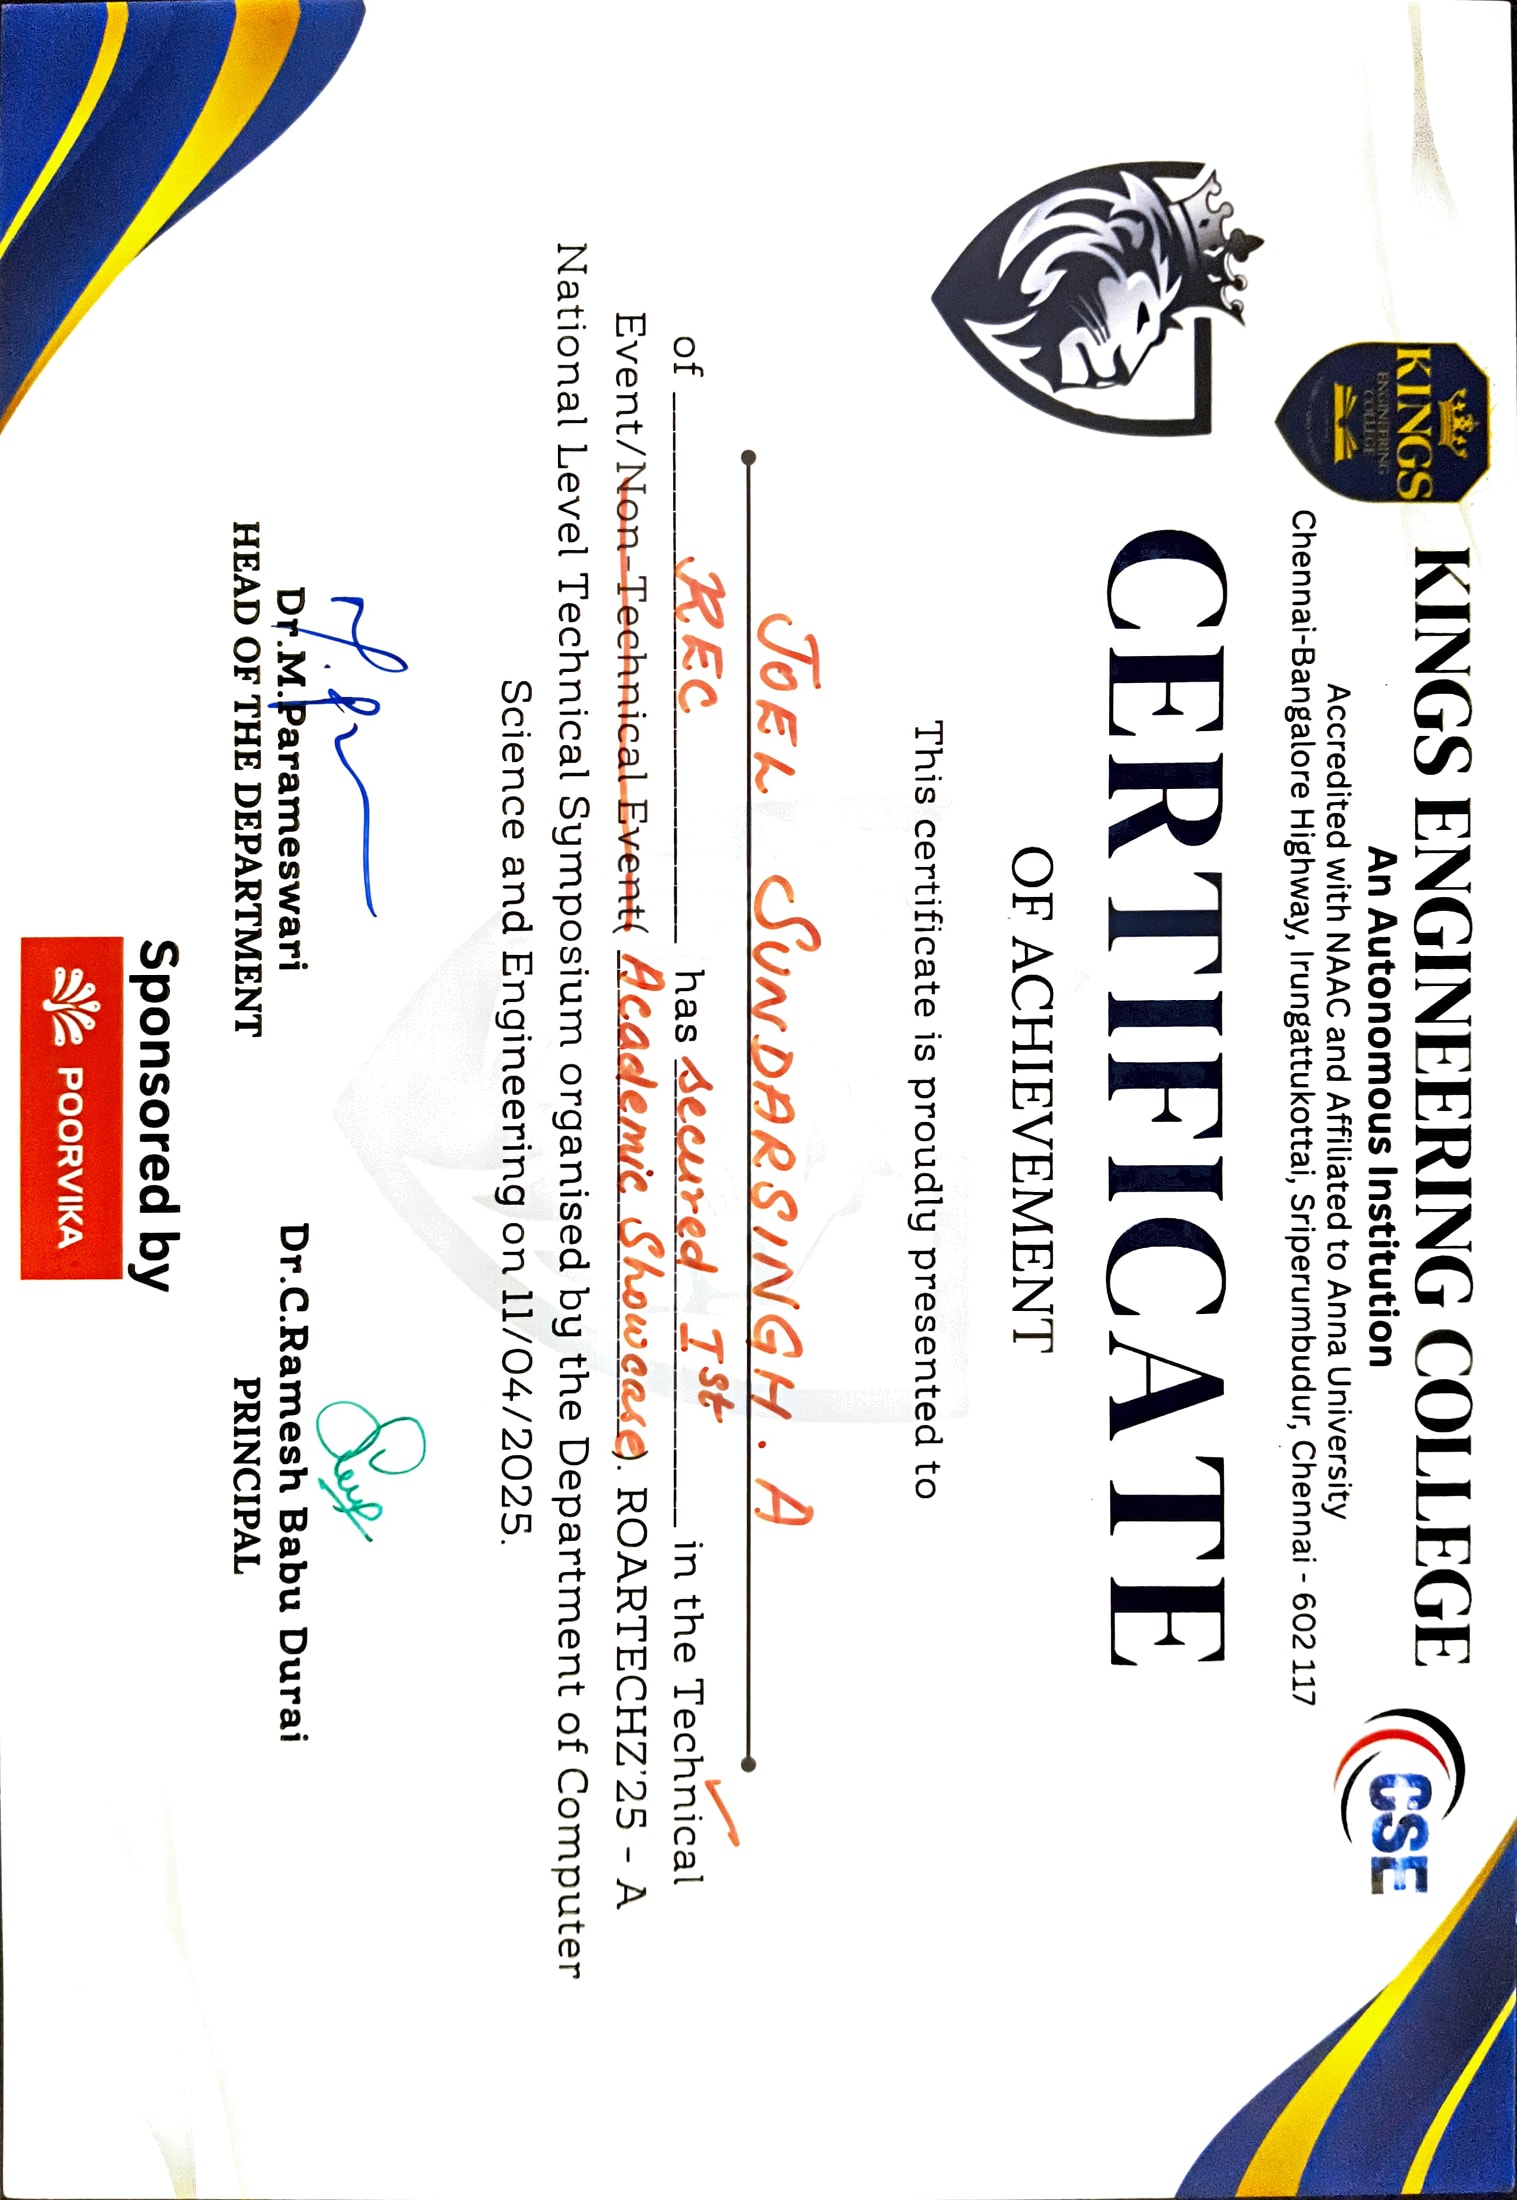 KINGS
ENGINEERING
COLLEGE
KINGS ENGINEERING COLLEGE
An Autonomous Institution
Accredited with NAAC and Affiliated to Anna University
Chennai-Bangalore Highway, Irungattukottai, Sriperumbudur, Chennai - 602 117
CSE
CERTIFICATE
OF ACHIEVEMENT
This certificate is proudly presented to
JOEL SUNDARSINGH. A
of REC has secured Ist in the Technical
Event/Non-Technical Event( Academic Showcase). ROARTECHZ'25 - A
National Level Technical Symposium organised by the Department of Computer
Science and Engineering on 11/04/2025.
Dr.M.Parameswari
HEAD OF THE DEPARTMENT
Dr.C.Ramesh Babu Durai
PRINCIPAL
Sponsored by
POORVIKA